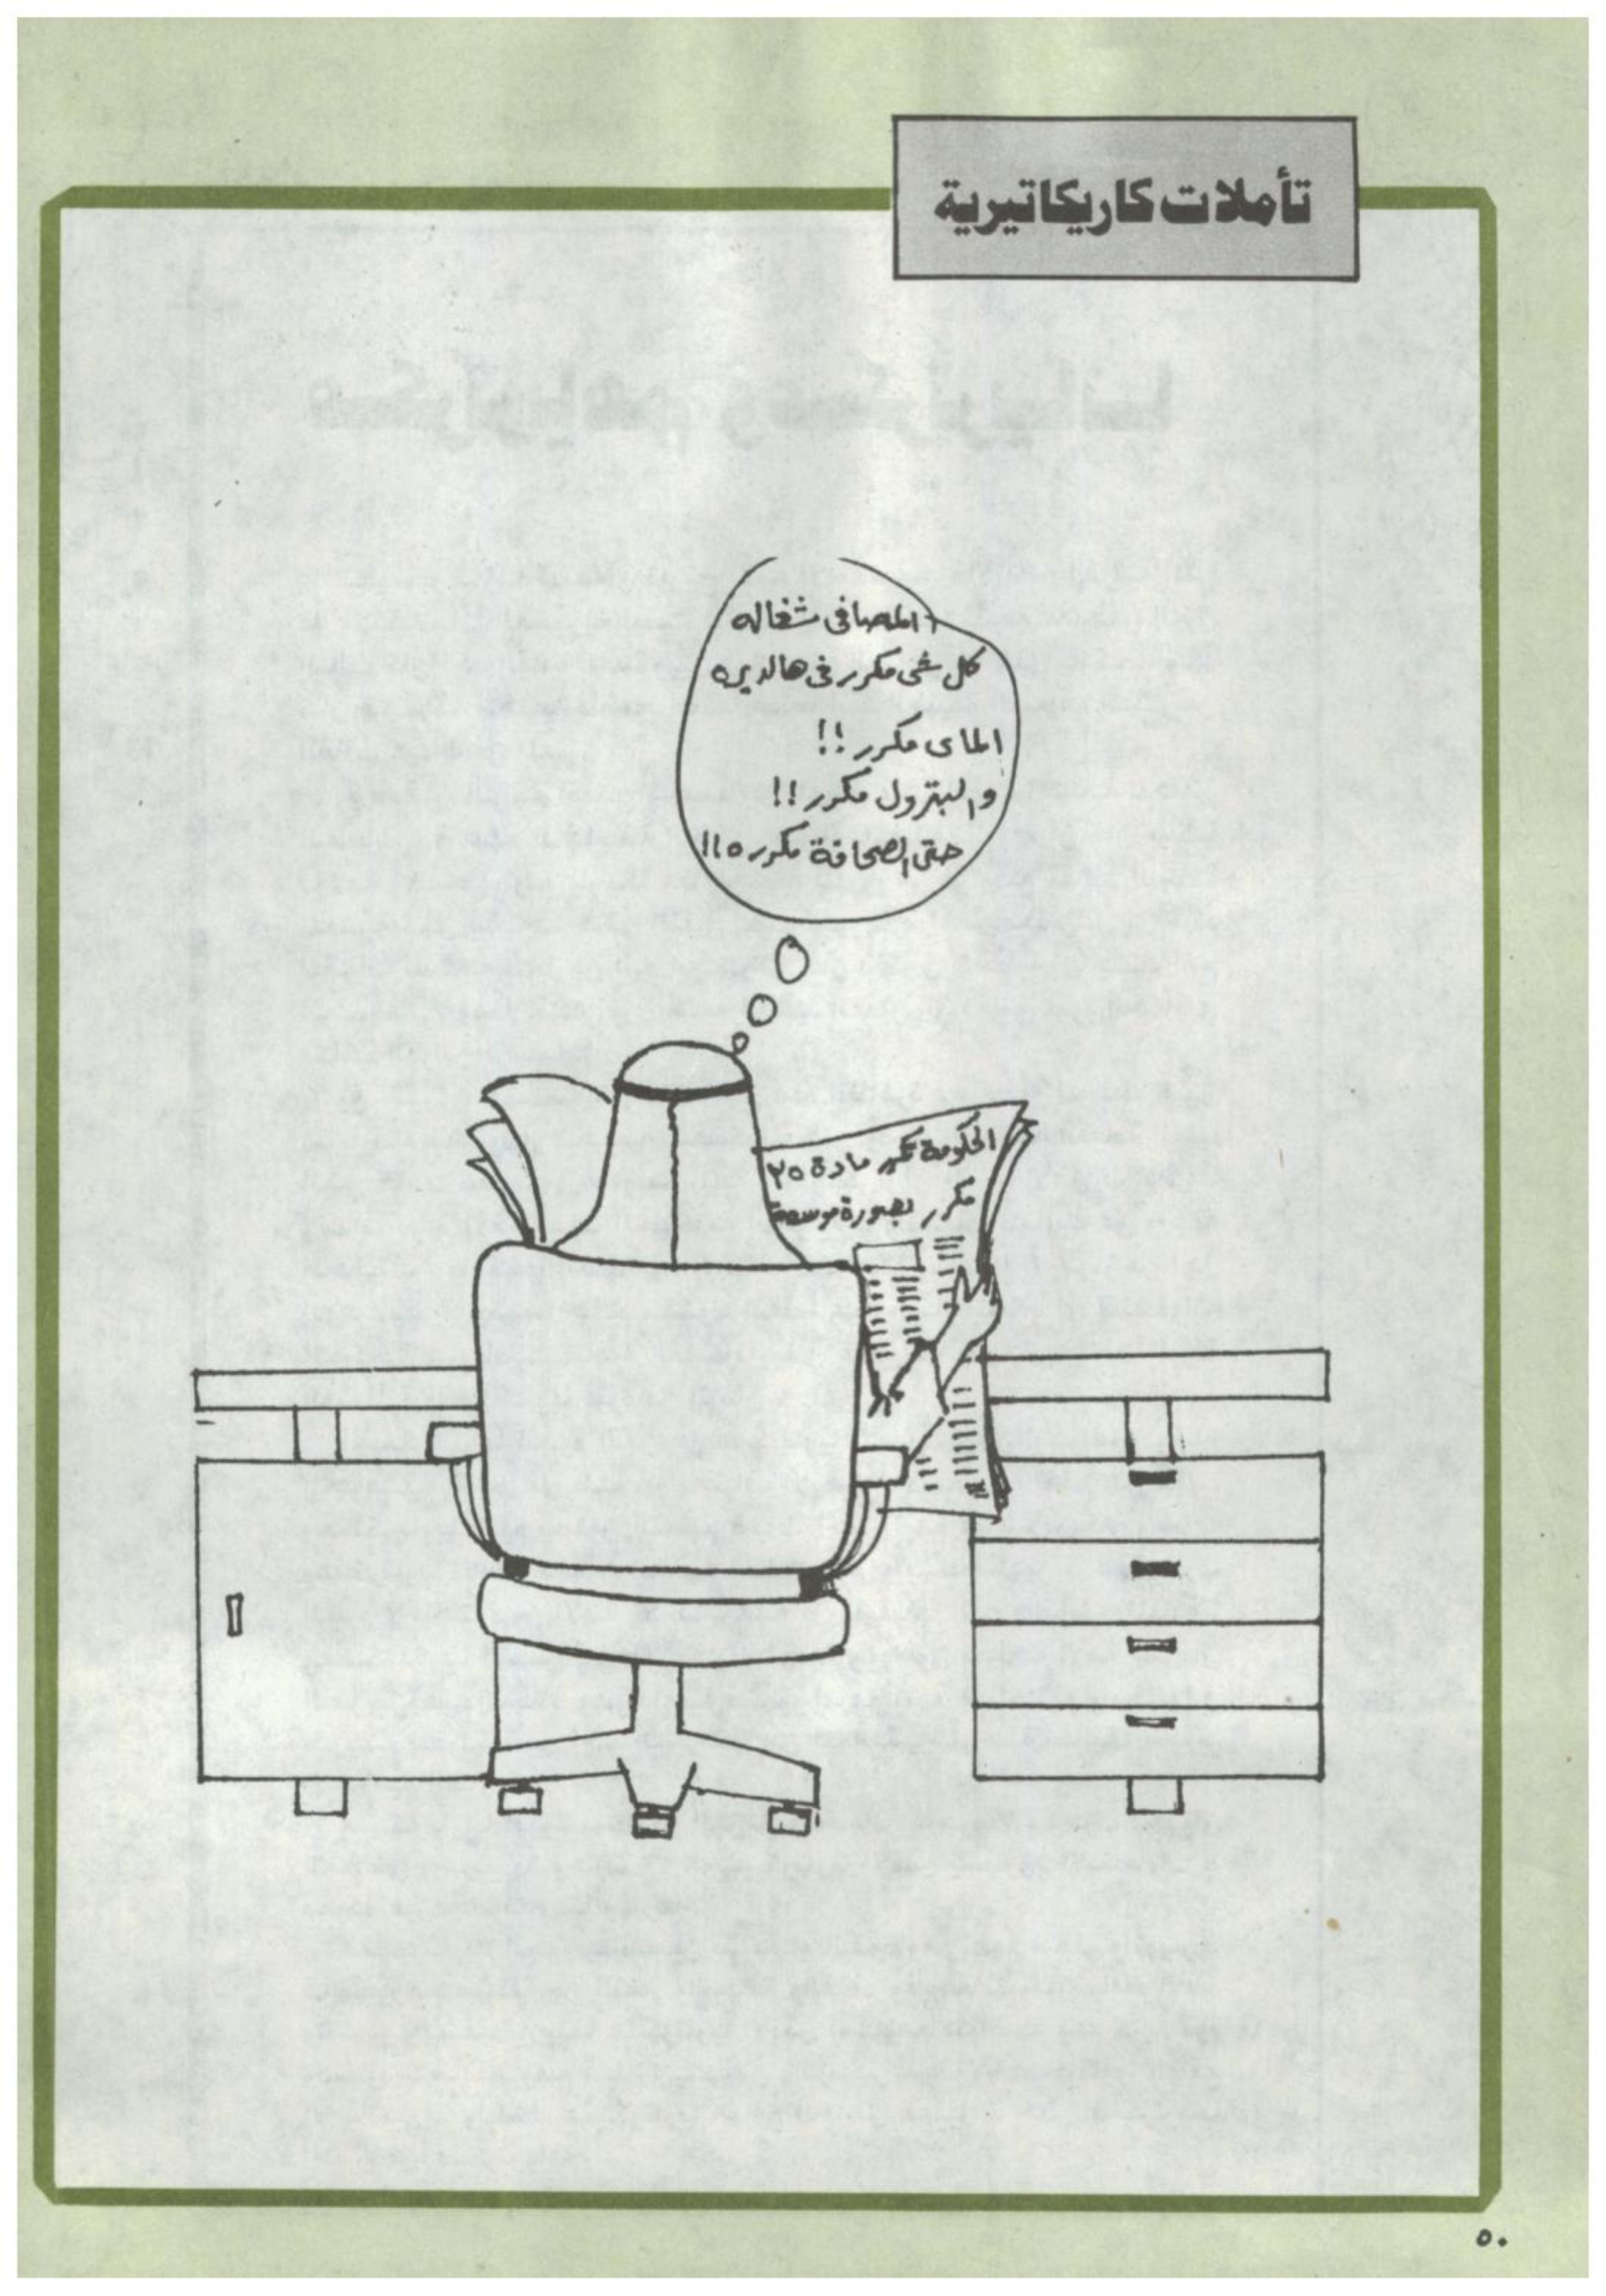 تأملات كاريكاتيرية
المصافى شغاله
كل شى مكرر فى هالديره
الماى مكرر !!
والبترول مكرر !!
حتى الصحافة مكرره !!
الحكومة تكرر مادة ٣٥
مكرر بصورة موسعة
٥٠